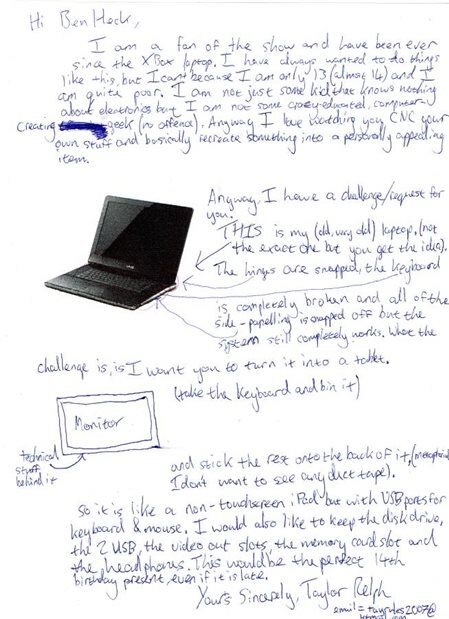 Hi Ben Heck,
I am a fan of the show and have been ever
since the XBox laptop. I have always wanted to do things
like this, but I can't because I am only 13 (almost 14) and I
am quite poor. I am not just some kid that knows nothing
about electronics but I am not some crazy-educated, computer-
creating geek (no offence). Anyway I love watching you CNC your
own stuff and basically recreate something into a personally appealing
item.
Anyway, I have a challenge/request for
you.
THIS is my (old, very old) laptop. (not
the exact one but you get the idea).
The hinges are snapped, the keyboard
is completely broken and all of the
side-panelling is snapped off but the
system still completely works. What the
challenge is, is I want you to turn it into a tablet.
(take the keyboard and bin it)
Monitor
technical
stuff
behind it
and stick the rest onto the back of it, (metaphorical
I dont want to see any duct tape).
So it is like a non-touchscreen iPad but with USB ports for
keyboard & mouse. I would also like to keep the disk drive,
the 2 USB, the video out slots, the memory card slot and
the headphones. This would be the perfect 14th
birthday present, even if it is late.
Yours Sincerely, Taylor Relph
email =